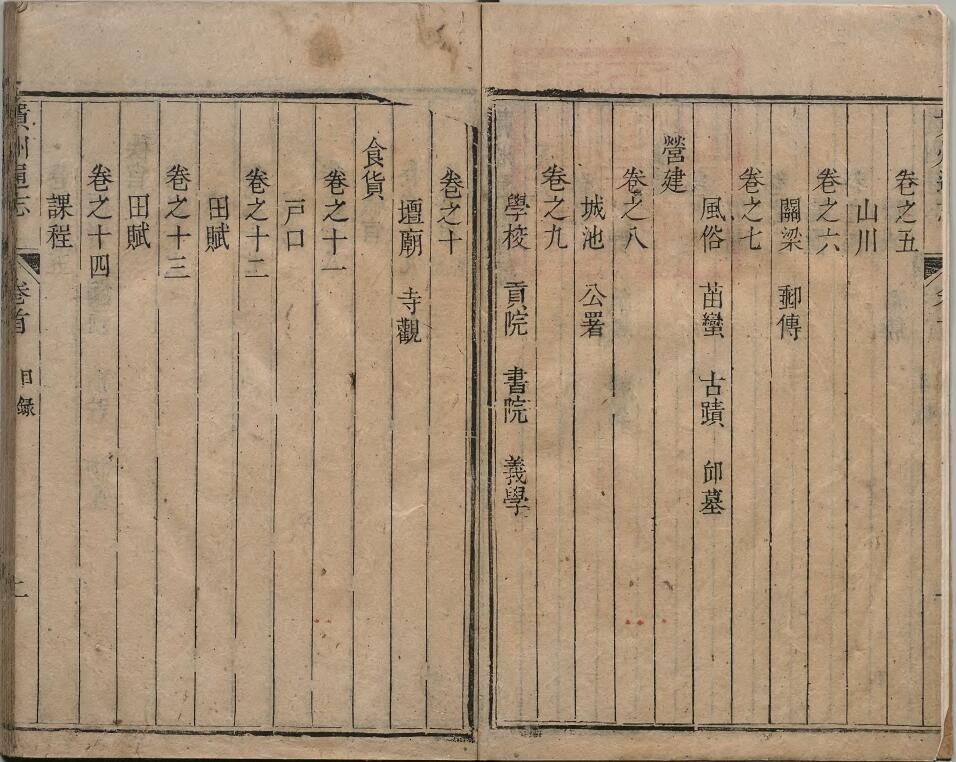 卷之五
山川
卷之六
關梁 郵傳
卷之七
風俗 苗蠻 古蹟 邱墓
營建
卷之八
城池 公署
卷之九
學校 貢院 書院 義學
卷之十
壇廟 寺觀
食貨
卷之十一
戸口
卷之十二
田賦
卷之十三
田賦
卷之十四
課程
貴州通志 卷首 目錄